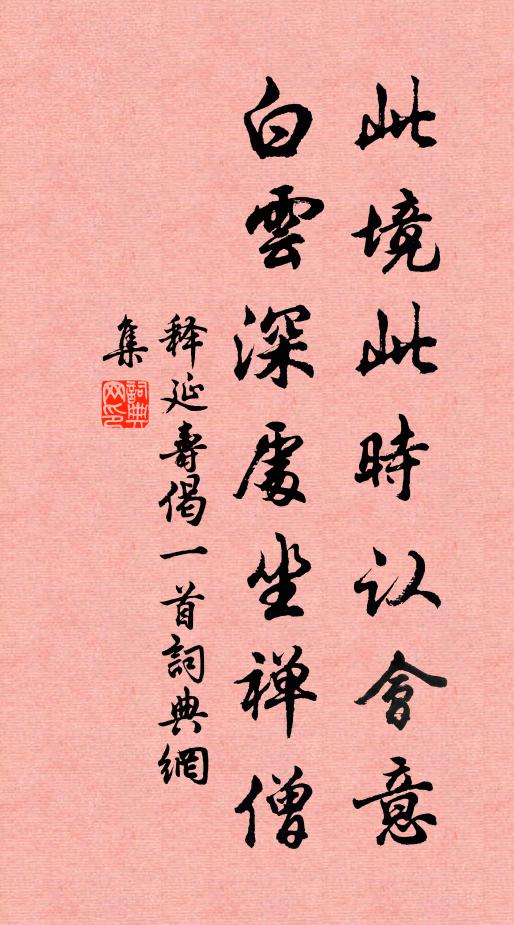 此境此時认會意
白雲深處坐禅僧
释延壽偈一首詞典網
集
詞典
网印